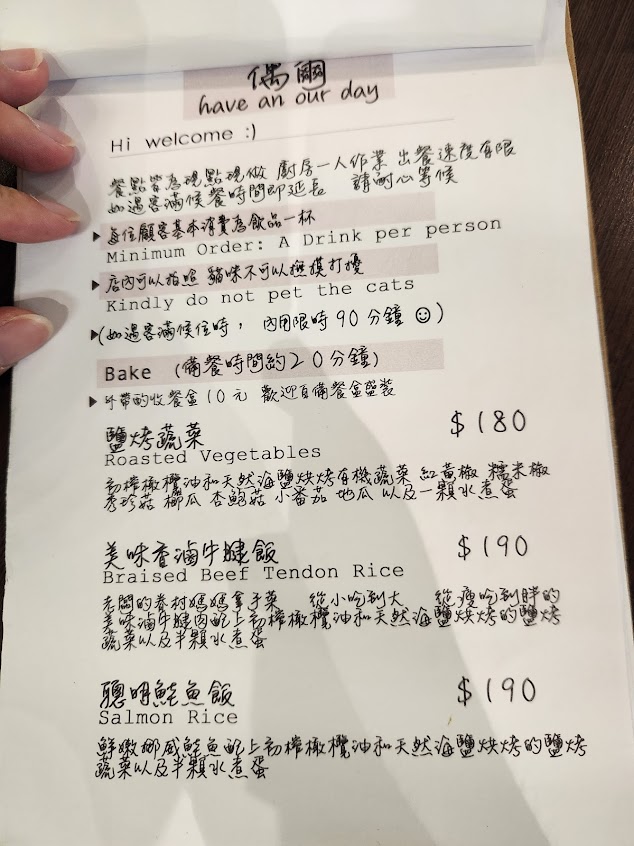 偶爾
have an our day
Hi welcome :)
餐點皆為現點現做 廚房一人作業 出餐速度有限
如遇客滿候餐時間即延長 請耐心等候
▶每位顧客基本消費為飲品一杯
Minimum Order: A Drink per person
▶店內可以拍照 貓咪不可以撫摸打擾
Kindly do not pet the cats
▶(如遇客滿候位時， 內用限時90分鐘☺)
Bake (備餐時間約20分鐘)
▶外帶酌收餐盒10元 歡迎自備餐盒盛裝
鹽烤蔬菜 $180
Roasted Vegetables
初榨橄欖油和天然海鹽烘烤有機蔬菜 紅黃椒 糯米椒
秀珍菇 櫛瓜 杏鮑菇 小番茄 地瓜 以及一顆水煮蛋
美味香滷牛腱飯 $190
Braised Beef Tendon Rice
老闆的眷村媽媽拿手菜 從小吃到大 從瘦吃到胖的
美味滷牛腱肉配上初榨橄欖油和天然海鹽烘烤的鹽烤
蔬菜以及半顆水煮蛋
聰明鮭魚飯 $190
Salmon Rice
鮮嫩挪威鮭魚配上初榨橄欖油和天然海鹽烘烤的鹽烤
蔬菜以及半顆水煮蛋